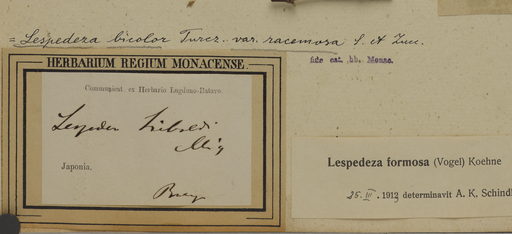 = Lespedeza bicolor Turcz. var. racemosa S. et Zucc.
fide cat. hb. Monac.
HERBARIUM REGIUM MONACENSE.
Communicat ex Herbario Lugduno-Batavo.
Lespedeza Sieboldi
Miq
Japonia.
Lespedeza formosa (Vogel) Koehne
25. III. 1913 determinavit A. K. Schindl